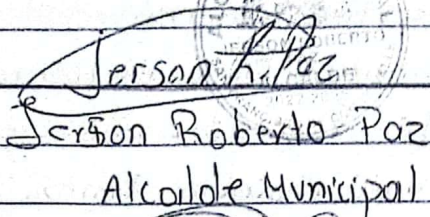 Jerson R. Paz
Jerson Roberto Paz
Alcalde Municipal